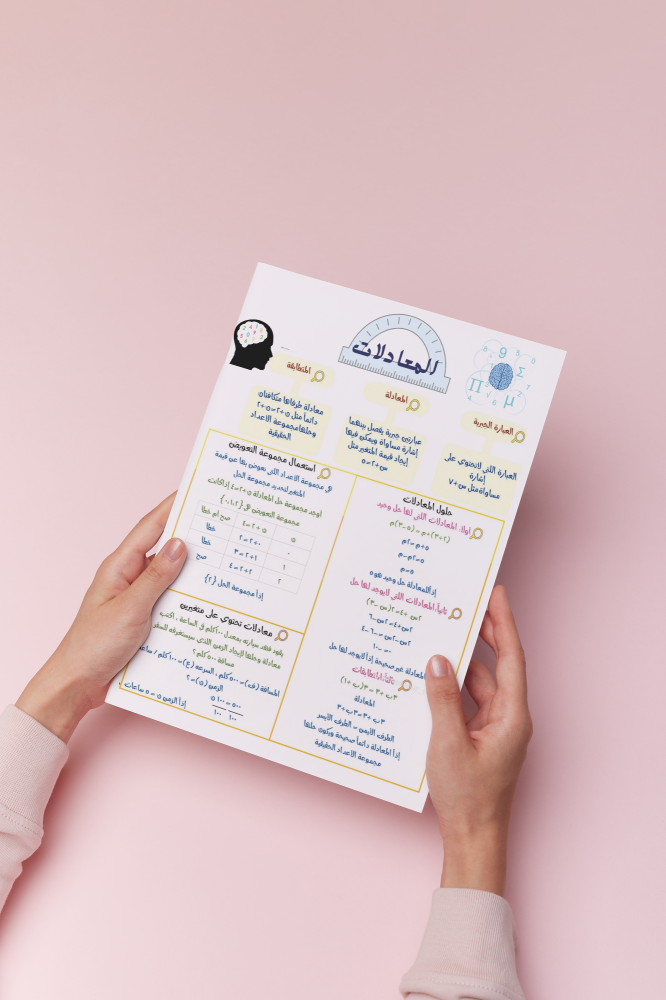 المعادلات
9
Σ
π
μ
العبارة الجبرية
المعادلة
المتطابقة
العبارة التي لاتحتوي على
إشارة
مساواة مثل س+٧
عبارتين جبرية يفصل بينهما
إشارة مساواة ويمكن فيها
إيجاد قيمة المتغير مثل
س+٢=٥
معادلة طرفاها متكافئان
دائماً مثل ن+٢=ن+٢
وحلها مجموعة الأعداد
الحقيقية
حلول المعادلات
أولاً: المعادلات التي لها حل وحيد
(٢+٣)+م=(٥-٣)م
٥+م=٢م
٥=٢م-م
٥=م
إذاً للمعادلة حل وحيد هو ٥
ثانياً: المعادلات التي لايوجد لها حل
٢س+٤=٢(س-٣)
٢س+٤=٢س-٦
٢س-٢س=-٦-٤
٠=-١٠
المعادلة غير صحيحة إذاً لايوجد لها حل
ثالثاً: المتطابقات
٣ب+٣=٣(ب+١)
المعادلة
٣ب+٣=٣ب+٣
الطرف الأيمن = الطرف الأيسر
إذاً المعادلة دائماً صحيحة ويكون حلها
مجموعة الأعداد الحقيقية
استعمال مجموعة التعويض
هي مجموعة الأعداد التي نعوض بها عن قيمة
المتغير لتحديد مجموعة الحل
أوجد مجموعة حل المعادلة ن+٢=٤ إذا كانت
مجموعة التعويض هي {٠،١،٢}
ن ن+٢=٤ صح أم خطأ
٠ ٠+٢=٢ خطأ
١ ١+٢=٣ خطأ
٢ ٢+٢=٤ صح
إذاً مجموعة الحل {٢}
معادلات تحتوي على متغيرين
يقود فهد سيارته بمعدل ١٠٠كلم في الساعة ، اكتب
معادلة وحلها لإيجاد الزمن الذي سيستغرقه للسفر
مسافة ٥٠٠كلم؟
المسافة (ف)=٥٠٠كلم ، السرعة (ع)=١٠٠كلم / ساعة
الزمن (ن)=؟
٥٠٠=١٠٠ن
١٠٠ ١٠٠
إذاً الزمن ن=٥ ساعات